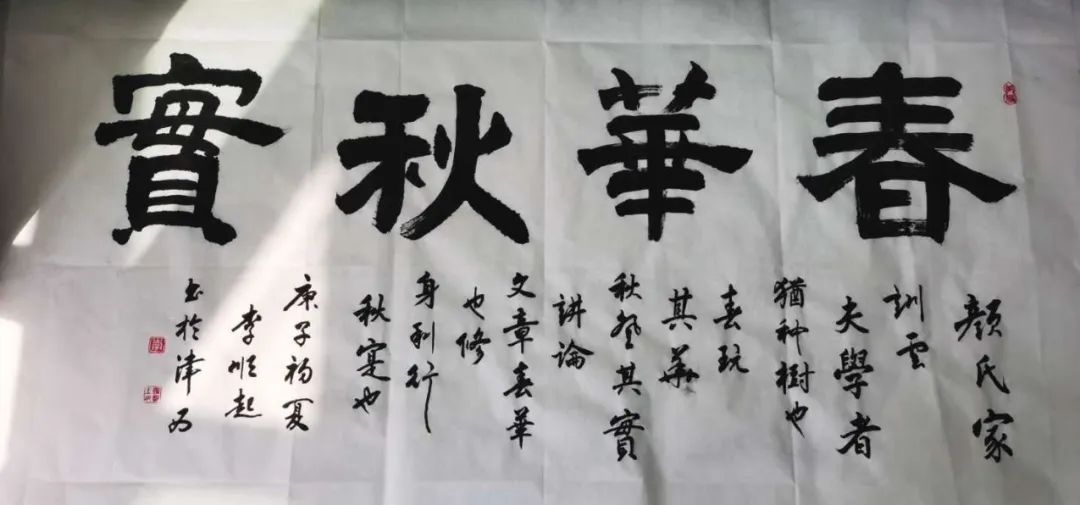 春華秋實
顔氏家
訓雲
夫學者
猶种樹也
春玩
其華
秋登其實
講論
文章春華
也修
身利行
秋寔也
庚子初夏
李順起
书於津西